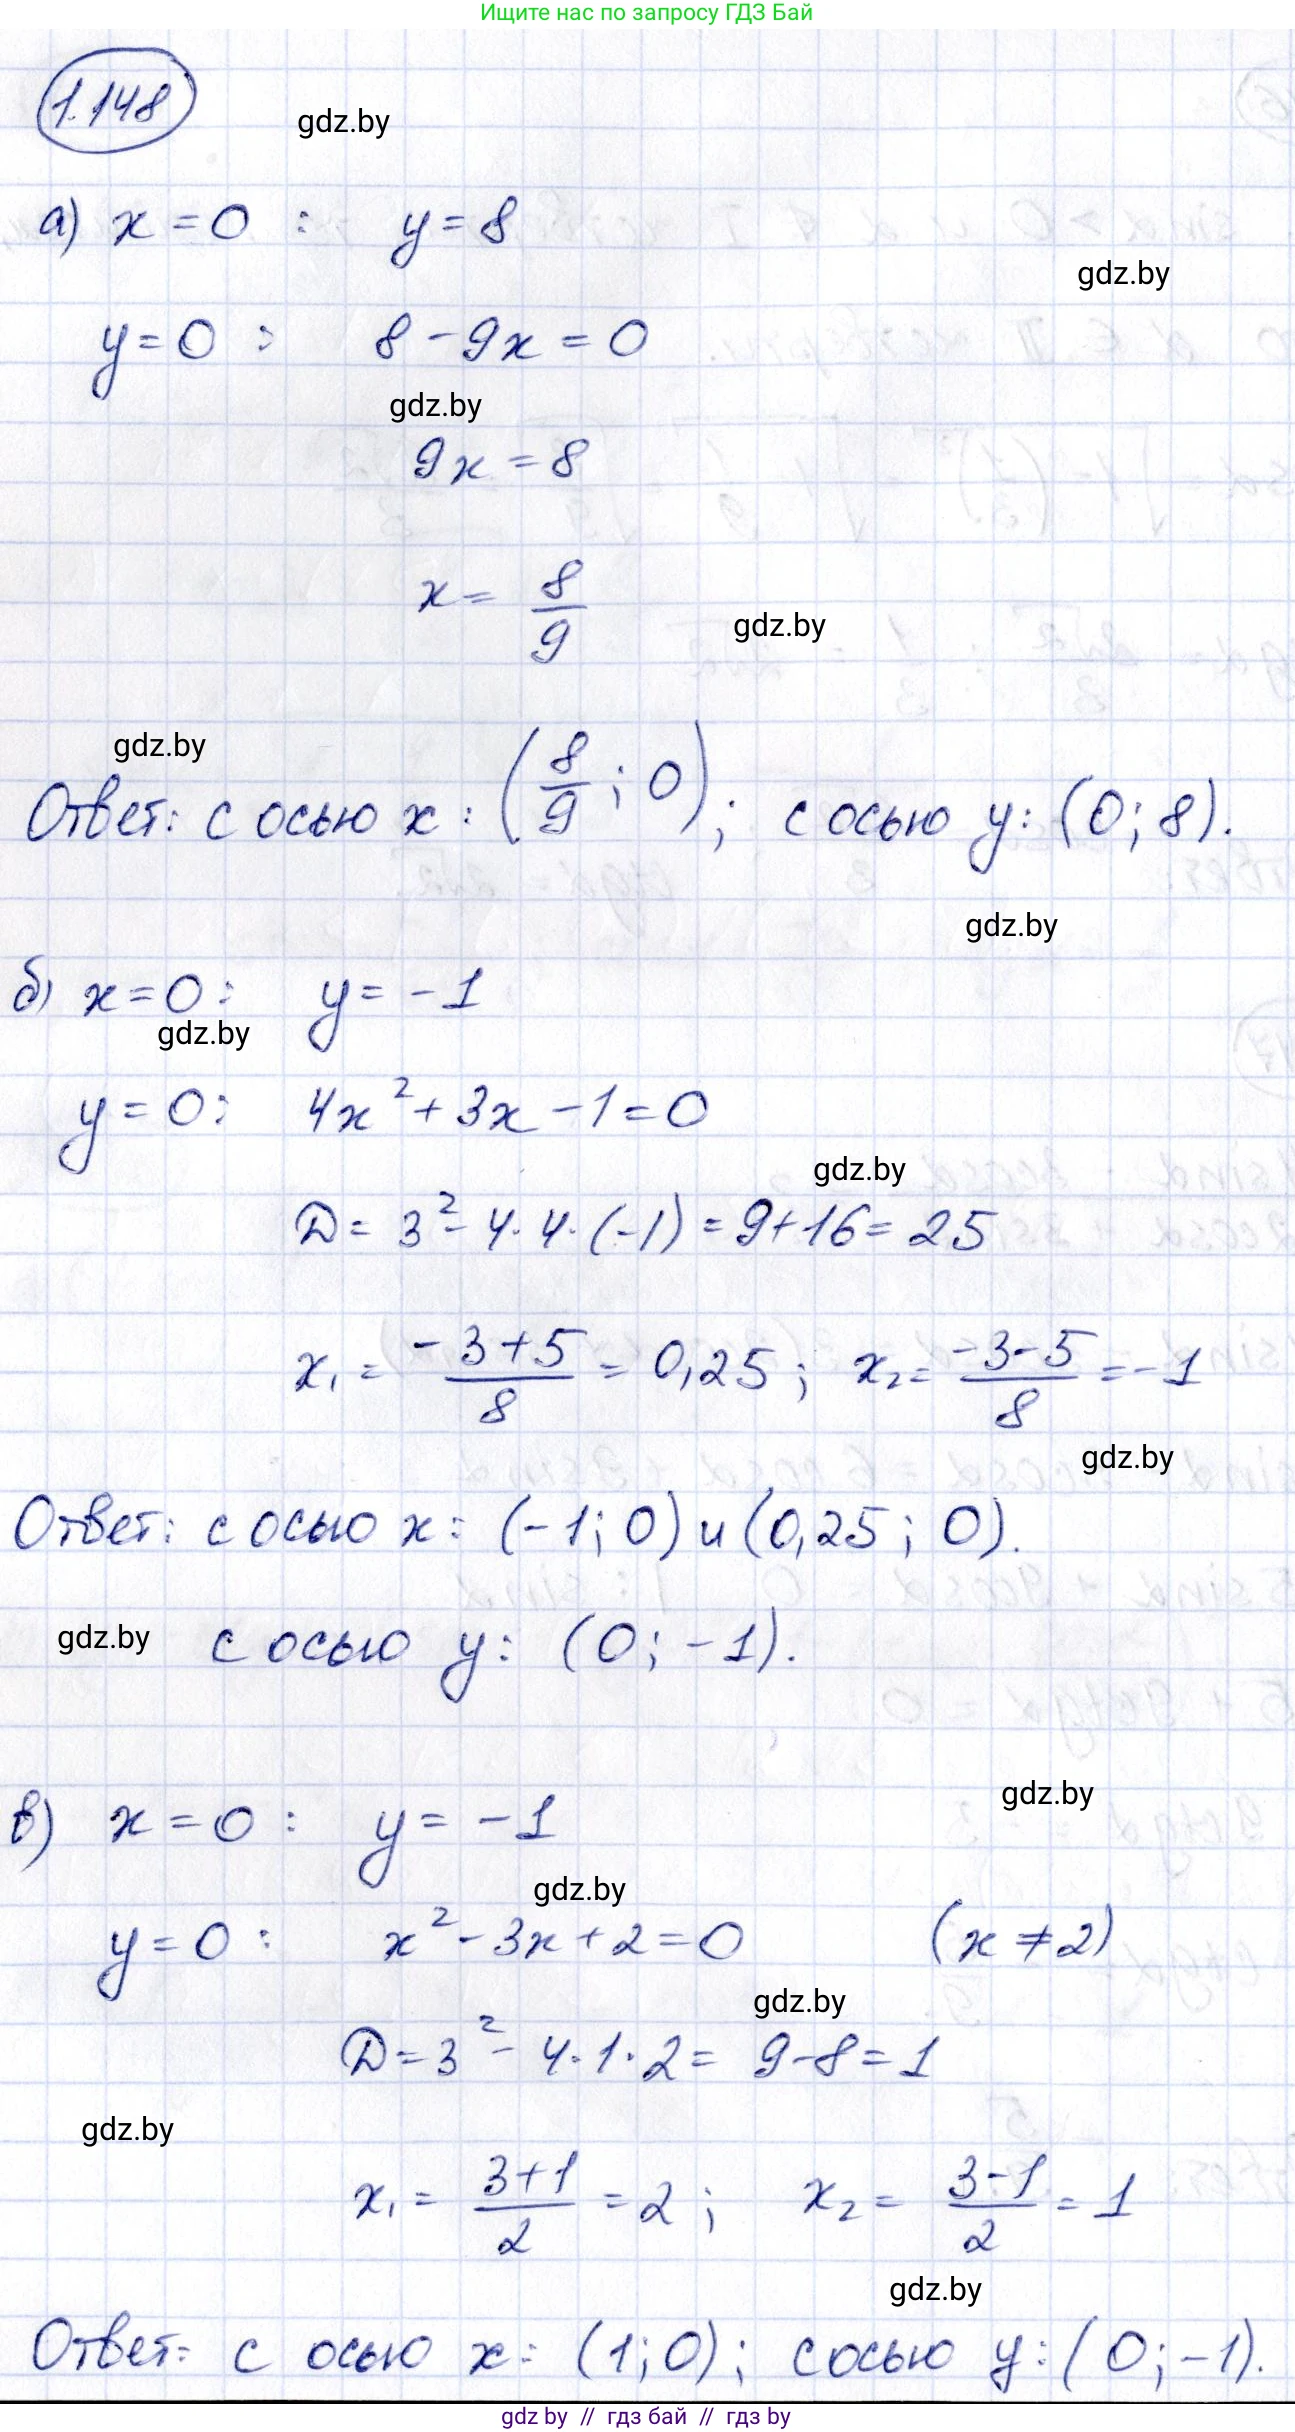 Ищите нас по запросу ГДЗ Бай
1.148
gdz.by
а) x = 0 : y = 8
gdz.by
y = 0 : 8 - 9x = 0
gdz.by
9x = 8
x = 8/9
gdz.by
gdz.by
Ответ: с осью x : (8/9 ; 0); с осью y: (0; 8).
gdz.by
б) x = 0 : y = -1
gdz.by
y = 0 : 4x² + 3x - 1 = 0
gdz.by
D = 3² - 4·4·(-1) = 9 + 16 = 25
x₁ = (-3+5)/8 = 0,25 ; x₂ = (-3-5)/8 = -1
gdz.by
Ответ: с осью x : (-1; 0) и (0,25 ; 0).
gdz.by
с осью y: (0; -1).
gdz.by
в) x = 0 : y = -1
gdz.by
y = 0 : x² - 3x + 2 = 0 (x ≠ 2)
gdz.by
D = 3² - 4·1·2 = 9 - 8 = 1
gdz.by
x₁ = (3+1)/2 = 2 ; x₂ = (3-1)/2 = 1
gdz.by
Ответ: с осью x : (1; 0); с осью y : (0; -1).
gdz by // гдз бай // гдз by